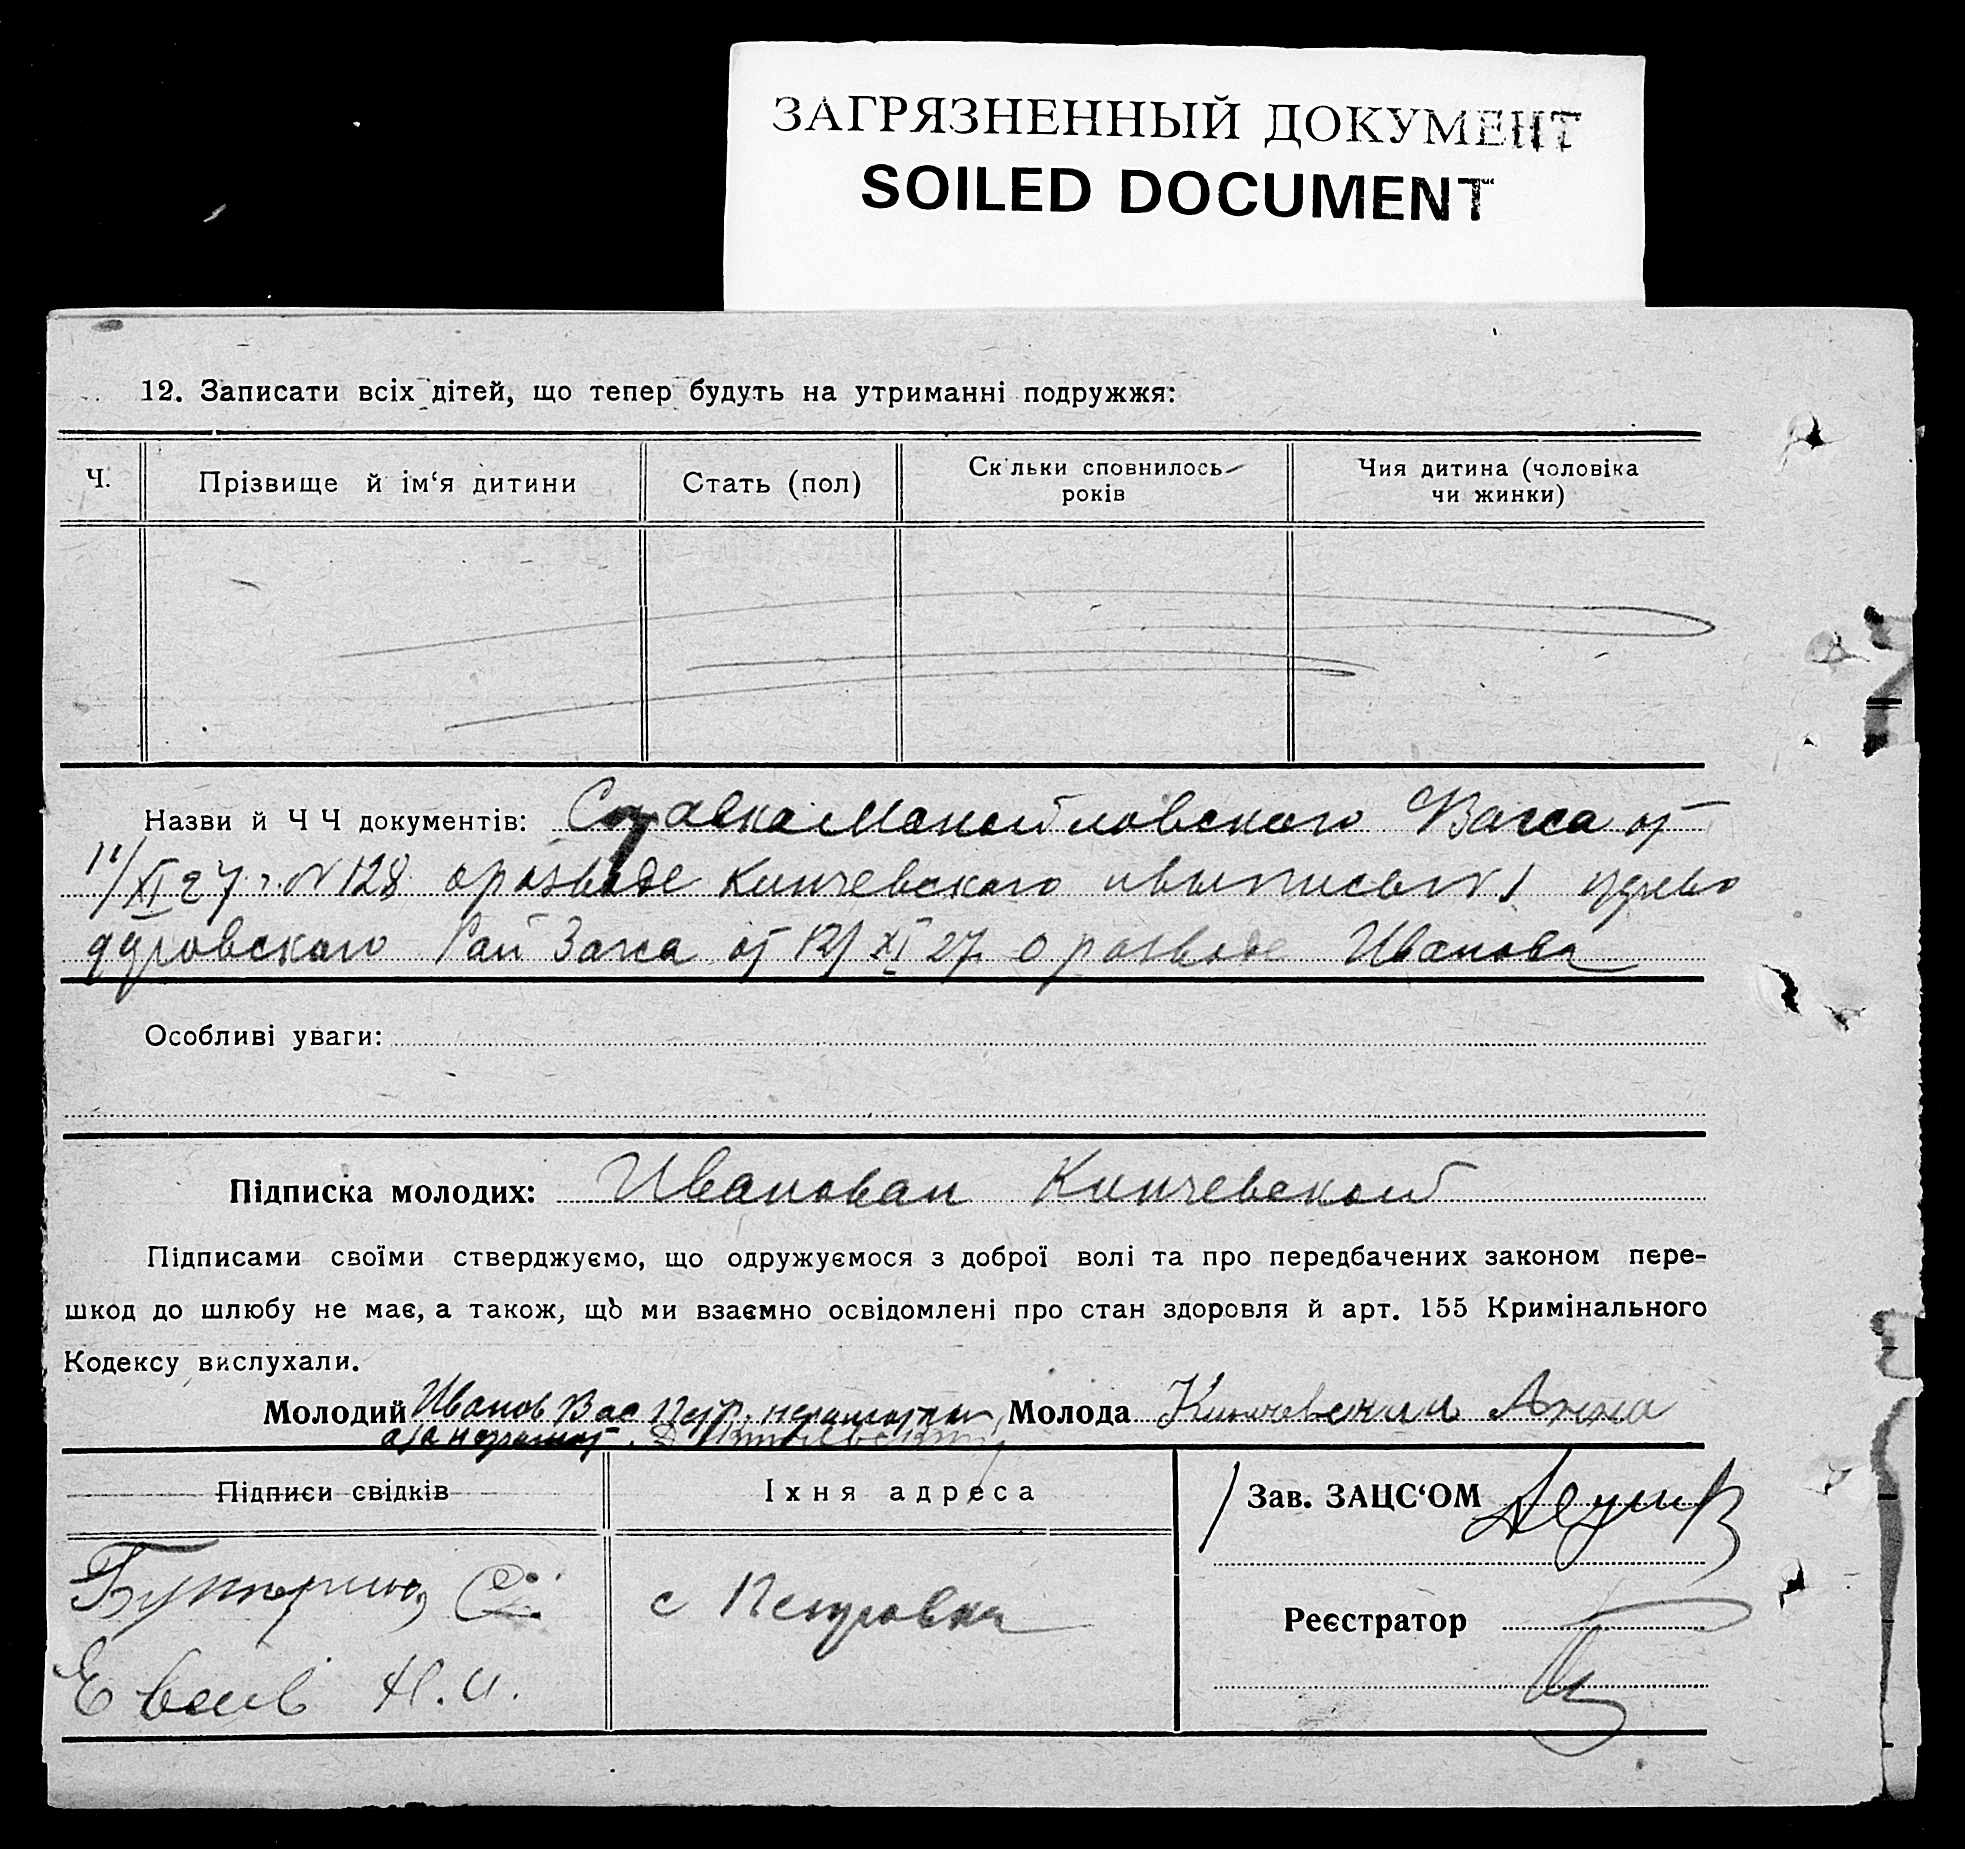 ЗАГРЯЗНЕННЫЙ ДОКУМЕНТ
SOILED DOCUMENT
12. Записати всіх дітей, що тепер будуть на утриманні подружжя:
Ч.
Прізвище й ім‘я дитини
Стать (пол)
Скільки сповнилось
років
Чия дитина (чоловіка
чи жинки)
Назви й Ч Ч документів: СправкаМанойловского Загса от
XI 27 г. N 128 о разводе Кинчевского и выписы N 1
Рай Загса от 12/XI 27 о разводе Иванова
Особливі уваги:
Підписка молодих: Кинчевской
Підписами своїми стверджуємо, що одружуємося з доброї волі та про передбачених законом пере-
шкод до шлюбу не має, а також, що ми взаємно освідомлені про стан здоровля й арт. 155 Кримінального
Кодексу вислухали.
Молодий Иванов Вас Петр. неграмотный Молода Кинчевская Анна
Підписи свідків
Іхня адреса
Зав. ЗАЦС‘ОМ
с Петровка
Реєстратор